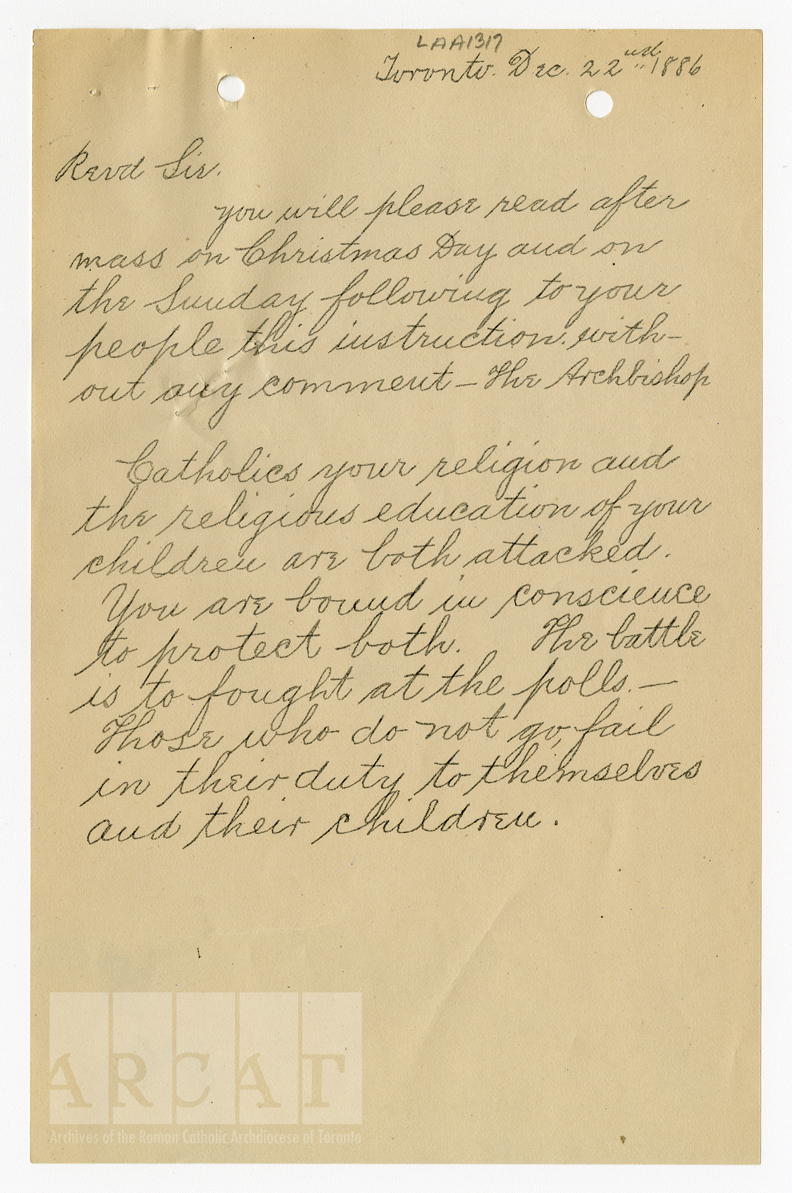 LAA1317
Toronto. Dec. 22nd 1886
Revd Sir.
you will please read after
mass on Christmas Day and on
the Sunday following to your
people this instruction, with-
out any comment — The Archbishop
Catholics your religion and
the religious education of your
children are both attacked.
You are bound in conscience
to protect both. The battle
is to fought at the polls. —
Those who do not go, fail
in their duty to themselves
and their children.
ARCAT
Archives of the Roman Catholic Archdiocese of Toronto